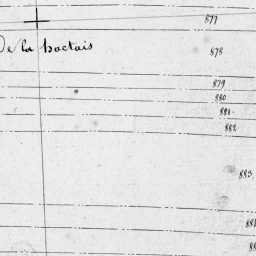 877
De la hoctais
878
879
880
881
882
883